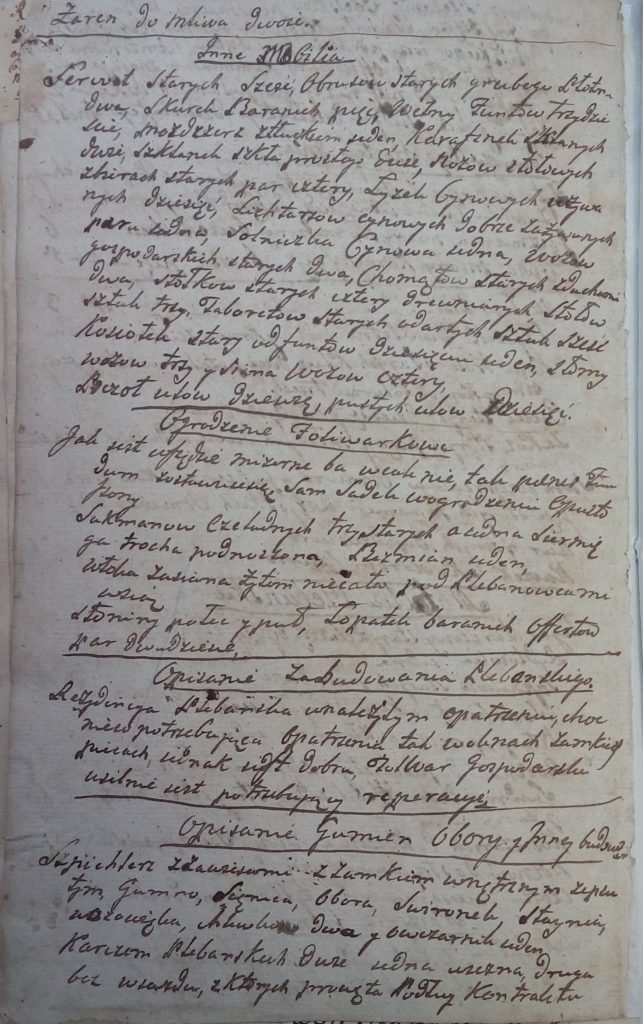 Żaren do mliwa dwoie.
Inne Mobilia
Serwet starych sześć, Obrusow starych grubego Płotna
dwa, Skurek Baranich pięć, Wełny Funtow trzydzie
scie, mozdzerz z tłuczkiem ieden, Karafinek szklanych
duże, Szklanek szkła prostego dwie, Nożow stołowych
zbierach starych par cztery, Łyżek Cynowych używa
nych dziesięć, Lichtarzow cynowych dobrze zażywanych
para iedna, Solniczka Cynowa iedna, Wozow
gospodarskich starych dwa, Chomątow starych
dwa, stołkow starych cztery drewnianych, Stołow
sztuk trzy, Taboretow starych odartych sztuk sześć
Kociołek stary od funtow dziesięciu ieden, słomy
wozow trzy y Siana Wozow cztery,
Pszczoł ulow dziewięć, pustych ulow dziesięć.
Ogrodzenie Foliwarkowe
Jak iest wszędzie mizerne ba wcale nie, tak
Sam Sadek w ogrodzeniu Opusto
szony
Sukmanow Czeladnych trzy starych a iedna Siermię
ga trocha podnoszona, Bezmian ieden,
włoka zasiana żytem niecała pod Plebanowcami
wsią
słoniny połec y puł, Łopatek baranich Offertow
Par dwadziescie,
Opisanie Zabudowania Plebańskiego.
Rezydencya Plebańska w należytym opatrzeniu, choc
nieco potrzebuiąca Opatrzenia tak w oknach
piecach, iednak iest dobra, Folwar Gospodarski
usilnie iest potrzebuiący reperacyi
Opisanie Gumien Obory y Inney budowli
Szpichlerz z zamkiem wnętrznym
tym, Gumno, Siennica, Obora, Swironek, Staynia,
dwa y Owczarnik ieden,
Karczem Plebańskich dwie iedna druga
bez wiazdu, z Ktorych Podług Kontraktu